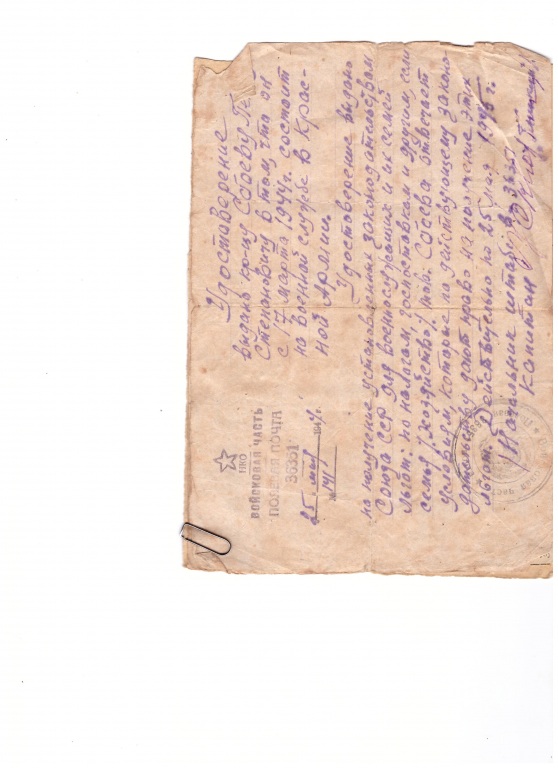 НКО
ВОЙСКОВАЯ ЧАСТЬ
ПОЛЕВАЯ ПОЧТА
36351
25 мая 1944 г.
№ 141
Удостоверение
выдано кр-цу Сабеву
Степановичу в том, что он
с 17 марта 1944 г. состоит
на военной службе в Крас-
ной Армии.
Удостоверение выдано
на получение установленных законодательством
Союза ССР для военнослужащих и их семей
льгот: по налогам, госпоставкам и другим, если
семья /хозяйство/ тов. Сабева отвечает
условиям, которые по действующему закон
дательству дают право на получение этих
льгот. Действительно по 25 мая 1945 г.
Начальник штаба в/ч
капитан